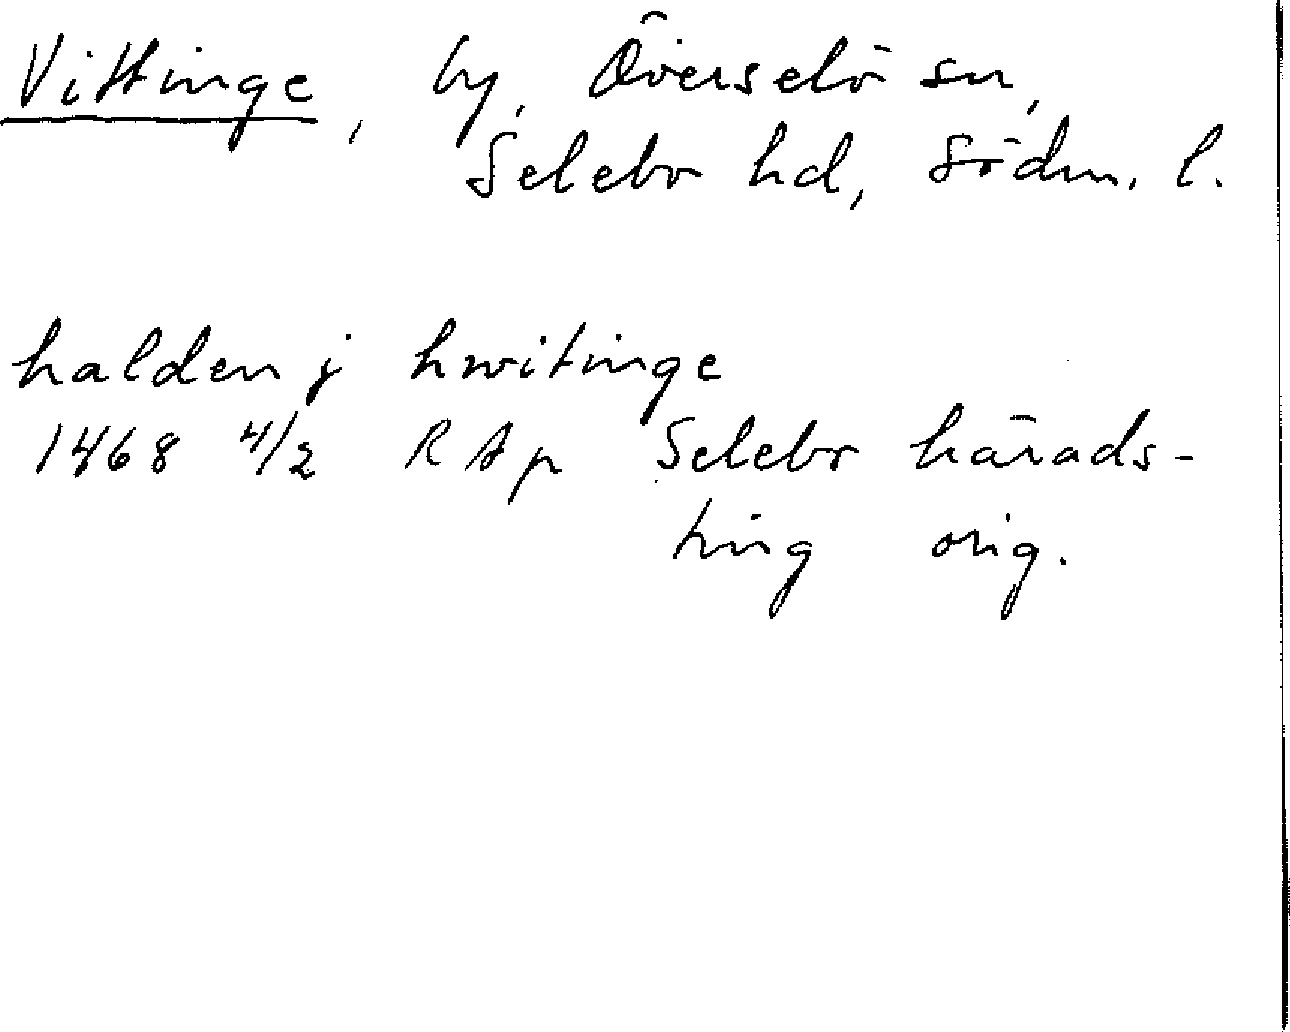 Vittinge, by, Överselö sn,
Selebo hd, Södm. l.
halden j hwitinge
1468 4/2 RAp Selebo härads-
ting orig.